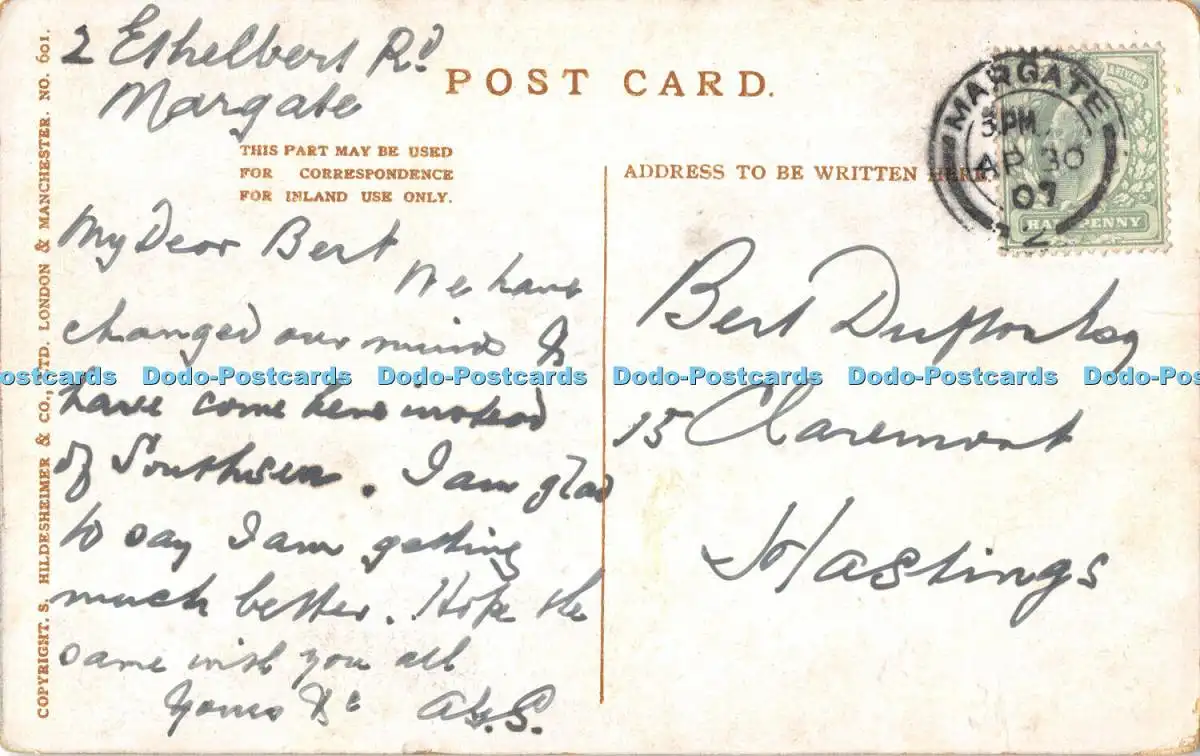 2 Ethelbert Rd
Margate
POST CARD.
THIS PART MAY BE USED
FOR CORRESPONDENCE
FOR INLAND USE ONLY.
My Dear Bert
We have
changed our minds &
have come here instead
of Southsea. I am glad
to say I am getting
much better. Hope the
same with you all
Yours &c A.G.S.
COPYRIGHT. S. HILDESHEIMER & CO., LTD. LONDON & MANCHESTER. NO. 601.
ADDRESS TO BE WRITTEN HERE.
MARGATE
3 PM
AP 30
07
HALFPENNY
Bert Dufton Esq
15 Claremont
Hastings
Dodo-Postcards Dodo-Postcards Dodo-Postcards Dodo-Postcards